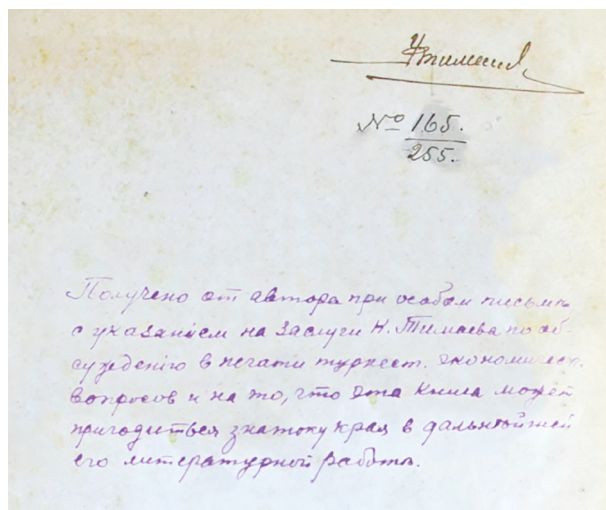 Н Тимаев
№ 165.
255.
Получено от автора при особом письмѣ
с указанiем на заслуги Н. Тимаева по об-
суждению в печати туркест. экономическ.
вопросов и на то, что эта книга может
пригодиться знатоку края в дальнѣйшей
его литературной работѣ.